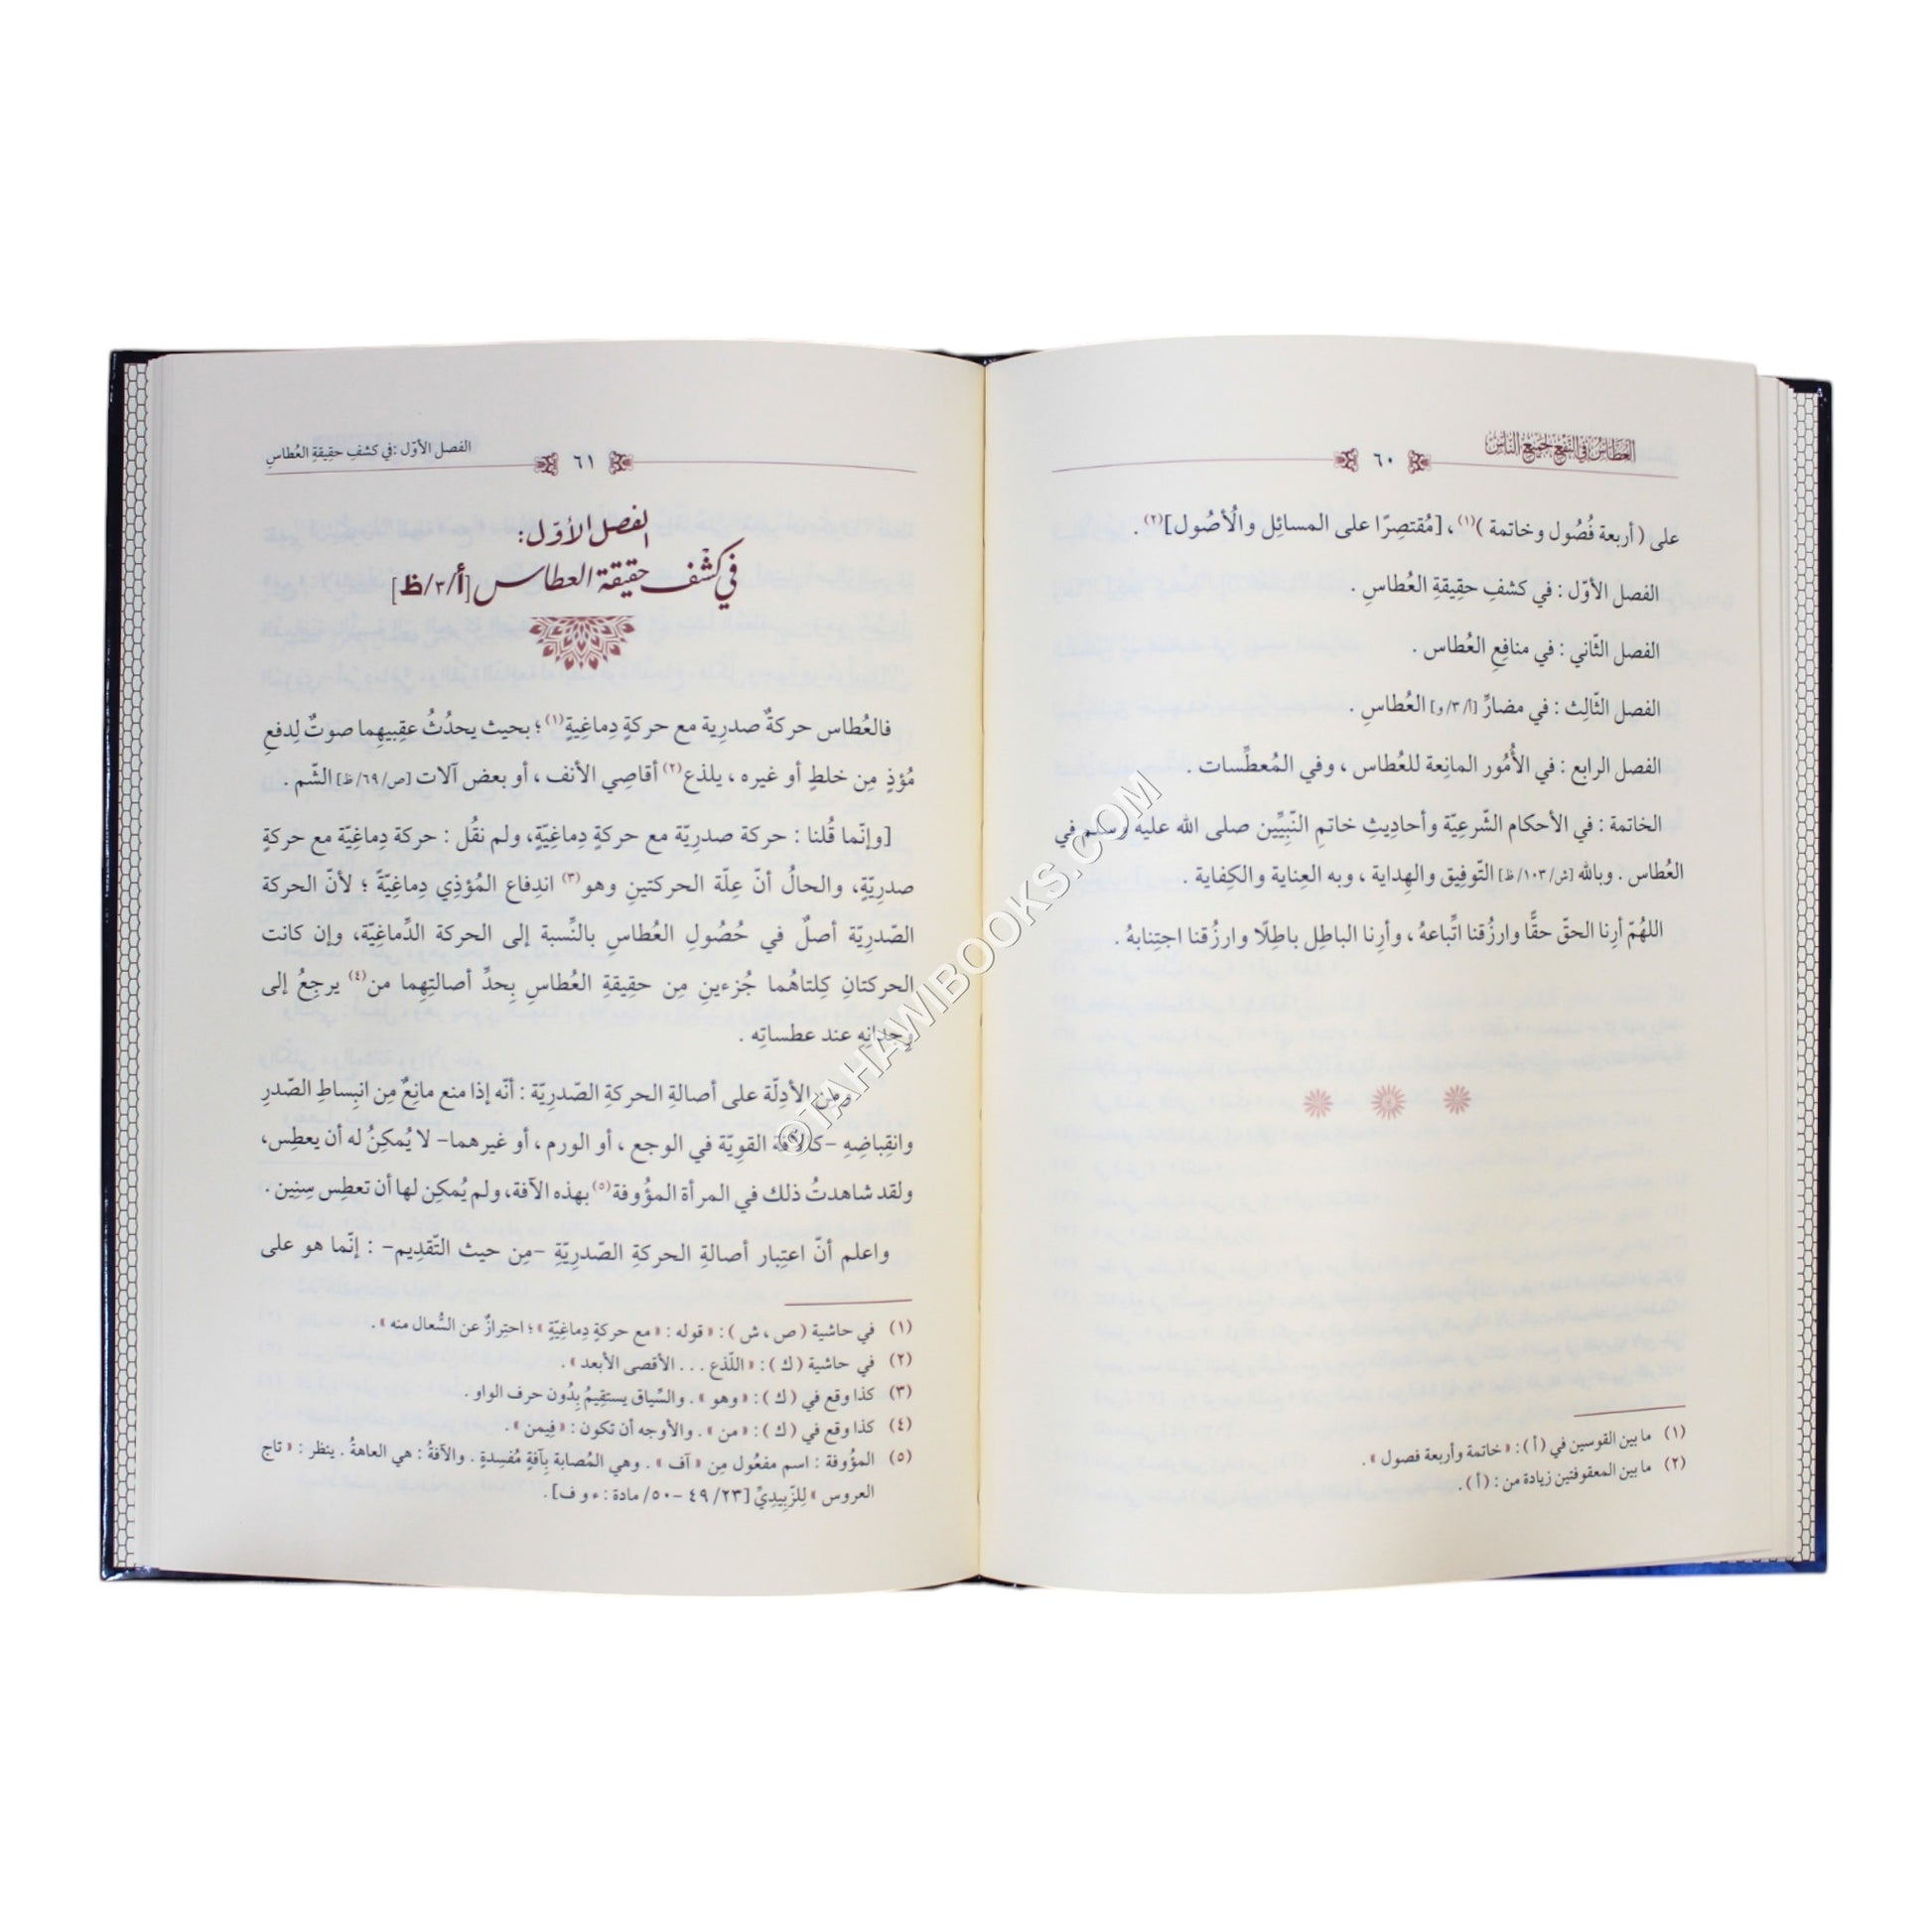 العطاس في النفع لجميع الناس
٦٠
على ( أربعة فُصُول وخاتمة )(١) ، [مُقتصِرًا على المسائِل والأُصُول](٢) .
الفصل الأوّل : في كشفِ حقِيقةِ العُطاسِ .
الفصل الثّاني : في منافِعِ العُطاس .
الفصل الثّالِث : في مضارِّ [أ/٣/و] العُطاسِ .
الفصل الرابع : في الأُمُور المانِعة للعُطاس ، وفي المُعطِّسات .
الخاتمة : في الأحكام الشّرعِيّة وأحادِيثِ خاتمِ النّبِيِّين صلى الله عليه وسلم في
العُطاس . وبالله [ش/١٠٣/ظ] التّوفِيق والهِداية ، وبه العِناية والكِفاية .
اللهُمّ أرِنا الحقّ حقًّا وارزُقنا اتِّباعهُ ، وأرِنا الباطِل باطِلًا وارزُقنا اجتِنابهُ .
(١) ما بين القوسين في ( أ ) : « خاتمة وأربعة فصول » .
(٢) ما بين المعقوفتين زيادة من : ( أ ) .
الفصل الأوّل : في كشفِ حقِيقةِ العُطاسِ
٦١
الفصل الأوّل :
في كشف حقيقة العطاس [أ/٣/ظ]
فالعُطاس حركةٌ صدرِية مع حركةٍ دِماغِيةٍ(١) ؛ بحيث يحدُثُ عقِبيهِما صوتٌ لِدفعِ
مُؤذٍ مِن خلطٍ أو غيره ، يلذع(٢) أقاصِي الأنف ، أو بعض آلات [ص/٦٩/ظ] الشّم .
[وإنّما قُلنا : حركة صدرِيّة مع حركةٍ دِماغِيّةٍ، ولم نقُل : حركة دِماغِيّة مع حركةٍ
صدرِيّةٍ، والحالُ أنّ عِلّة الحركتينِ وهو(٣) اندِفاع المُؤذِي دِماغِيّةً ؛ لأنّ الحركة
الصّدرِيّة أصلٌ في حُصُولِ العُطاسِ بالنِّسبة إلى الحركة الدِّماغِيّة، وإن كانت
الحركتانِ كِلتاهُما جُزءينِ مِن حقِيقةِ العُطاسِ بِحدِّ أصالتِهِما من(٤) يرجِعُ إلى
وِجدانِهِ عند عطساتِه .
ومن الأدِلّة على أصالةِ الحركةِ الصّدرِيّة : أنّه إذا منع مانِعٌ مِن انبِساطِ الصّدرِ
وانقِباضِهِ -كالآفة القوِيّة في الوجع ، أو الورم ، أو غيرهما- لا يُمكِنُ له أن يعطِس،
ولقد شاهدتُ ذلك في المرأة المؤُوفة(٥) بهذه الآفة، ولم يُمكِن لها أن تعطِس سِنِين .
واعلم أنّ اعتِبار أصالةِ الحركةِ الصّدرِيّةِ -مِن حيث التّقدِيم- : إنّما هو على
(١) في حاشية ( ص ، ش ) : « قوله : « مع حركةٍ دِماغِيّةٍ » ؛ احتِرازٌ عن السُّعال منه » .
(٢) في حاشية ( ك ) : « اللّذع . . . الأقصى الأبعد » .
(٣) كذا وقع في ( ك ) : « وهو » . والسِّياق يستقِيمُ بِدُون حرف الواو .
(٤) كذا وقع في ( ك ) : « من » . والأوجه أن تكون : « فِيمن » .
(٥) المؤُوفة : اسم مفعُول مِن « آف » . وهي المُصابة بِآفةٍ مُفسِدةٍ . والآفةُ : هي العاهةُ . ينظر : « تاج
العروس » لِلزّبِيدِيِّ [٢٣/ ٤٩ -٥٠/ مادة : ء و ف] .
©TAHAWIBOOKS.COM